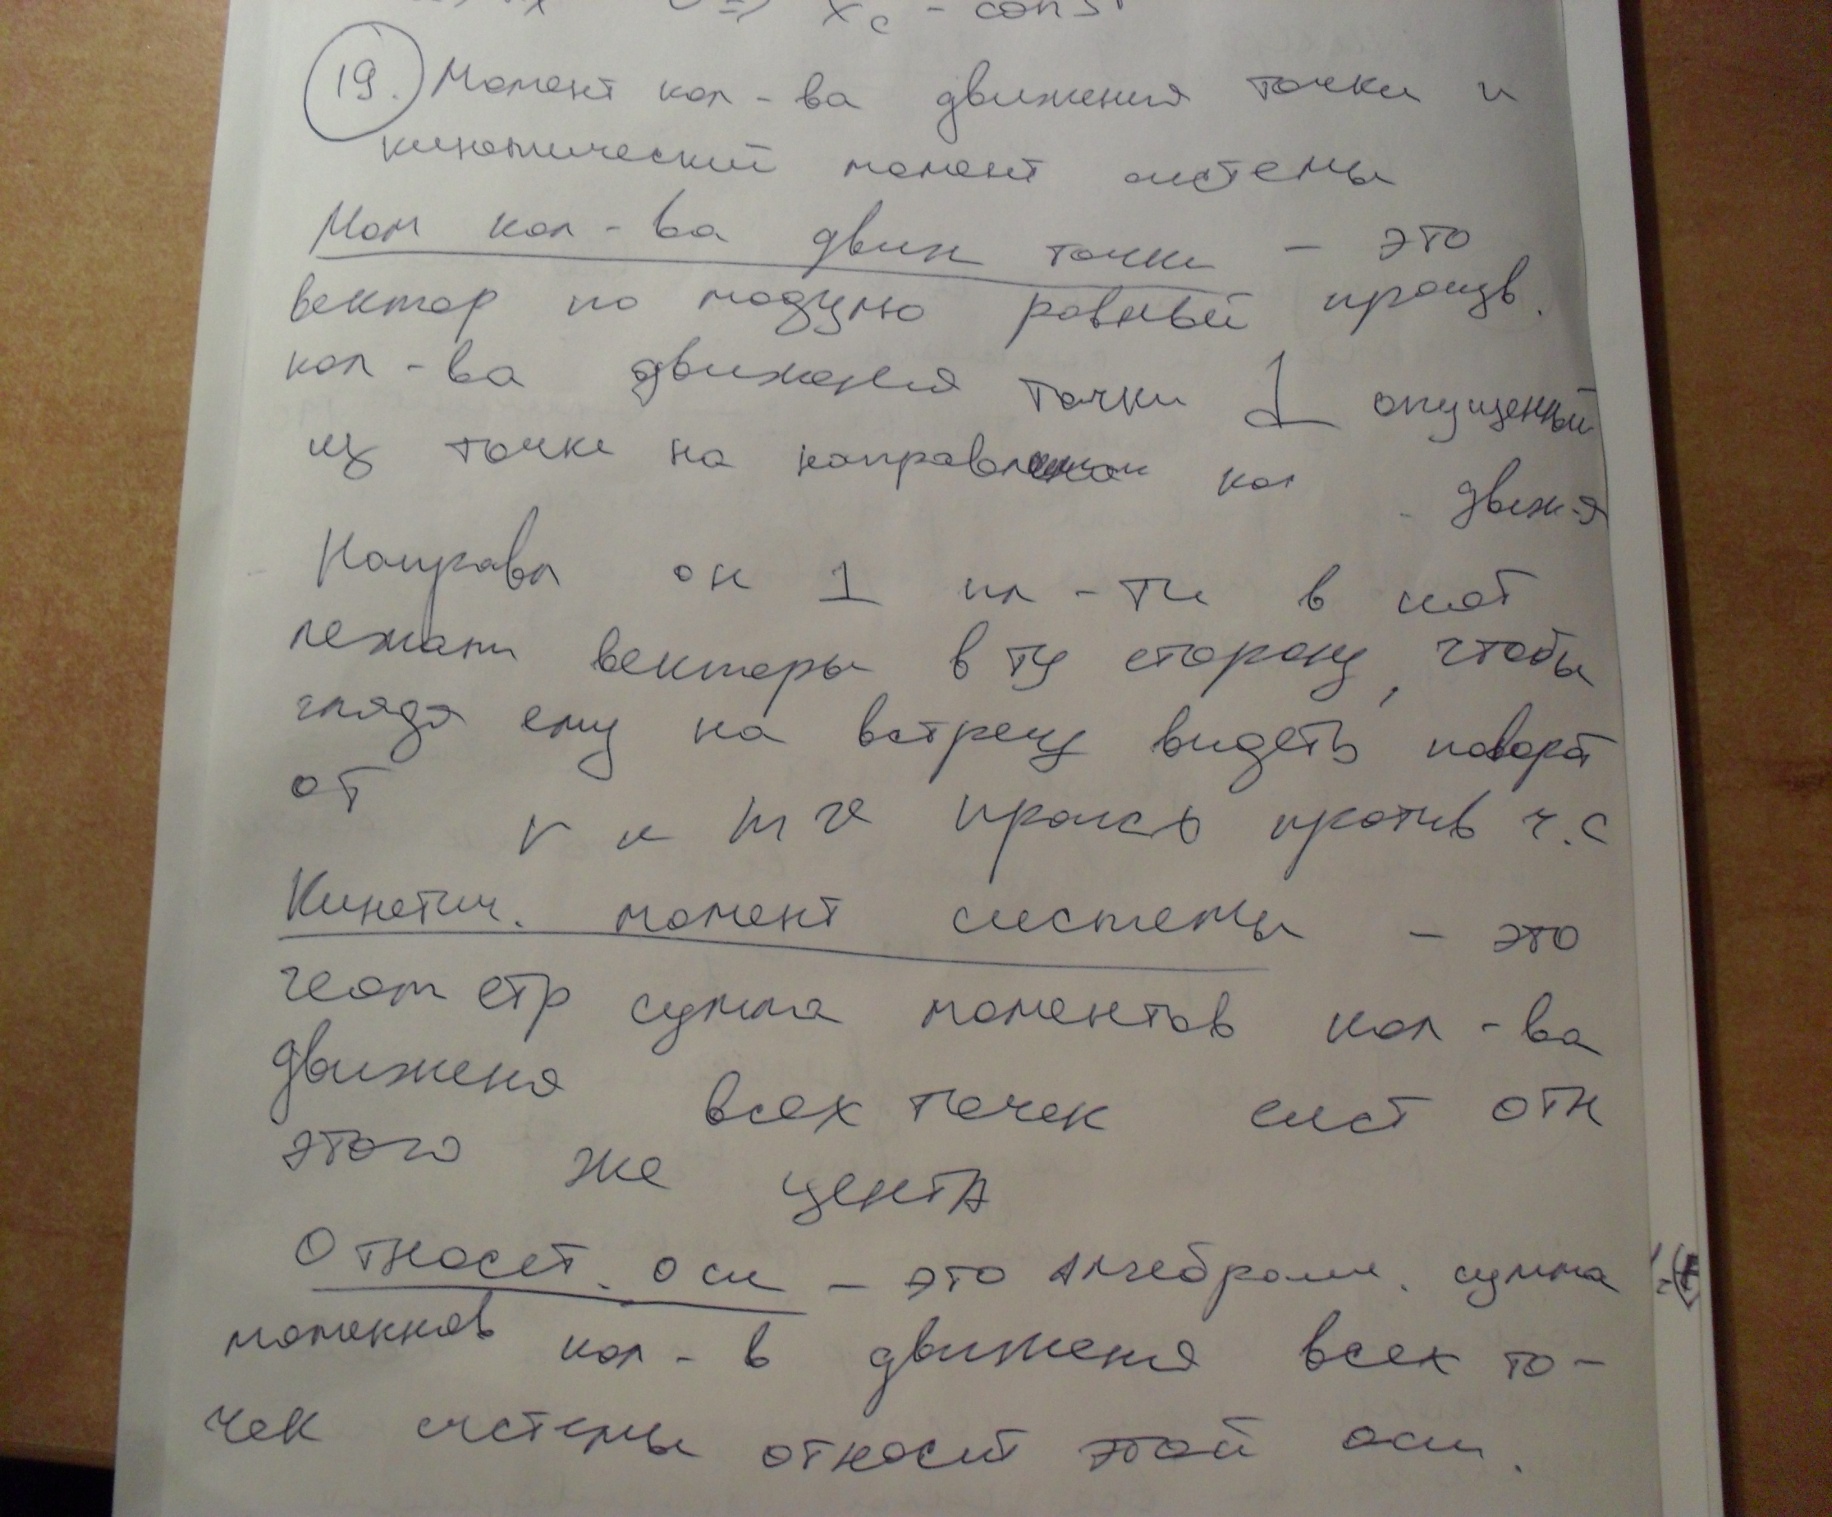 x_c - const
19. Момент кол-ва движения точки и
кинетический момент системы
Мом кол-ва движ точки - это
вектор по модулю равный произв.
кол-ва движения точки ⊥ опущенный
из точки на направлении кол движ-я
Направл он ⊥ пл-ти в кот
лежат векторы в ту сторону, чтобы
глядя ему на встречу видеть поворот
от r к mv происх против ч.с
Кинетич. момент системы - это
геометр сумма моментов кол-ва
движеня всех точек сист отн
этого же цента
Относит. оси - это алгебраич. сумма
моменнов кол-в движеня всех то-
чек системы относит этой оси.